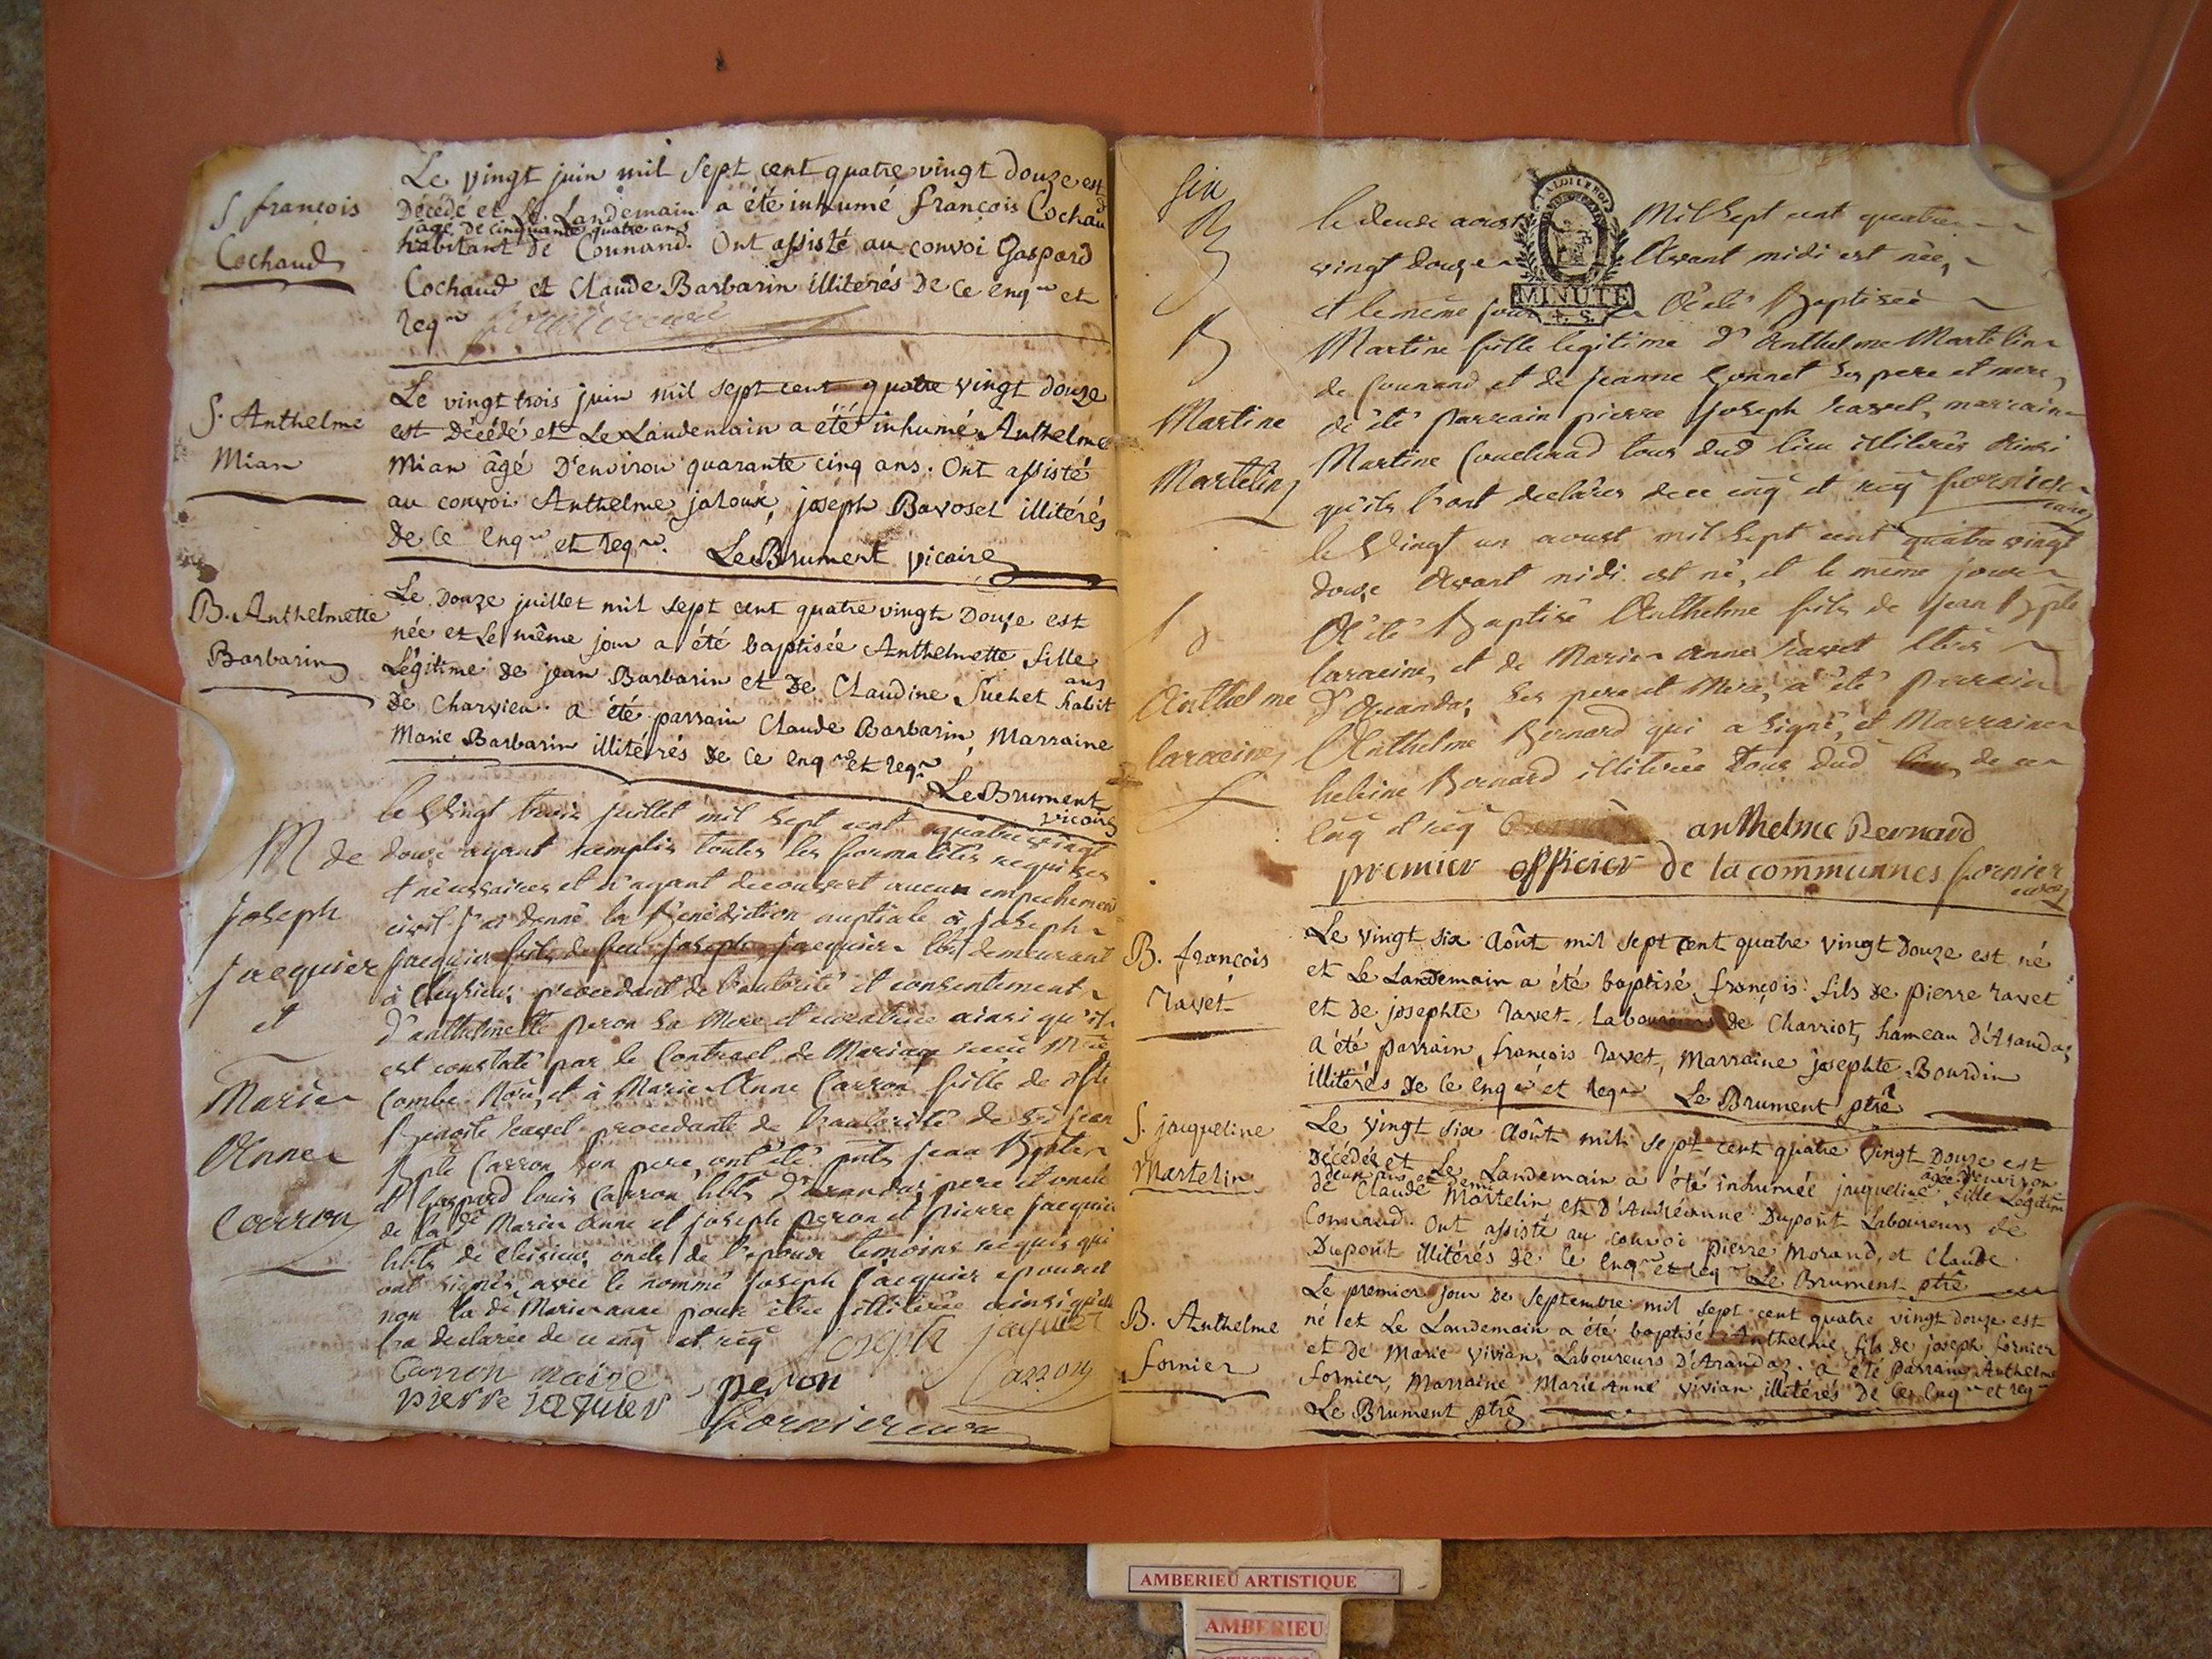 S françois
Cochaud
Le vingt juin mil sept cent quatre vingt douze est
Décédé et Le Landemain a été inhumé françois Cochaud
âgé de cinquante quatre ans
habitant de Counand. Ont assisté au convoi Gaspard
Cochaud et Claude Barbarin illitérés de ce enq et
req
S. Anthelme
Mian
Le vingt trois juin mil sept cent quatre vingt douze
est Décédé et Le Landemain a été inhumé Anthelme
Mian âgé D'environ quarante cinq ans. Ont assisté
au convoi Anthelme jaloux, joseph Bavoset illitérés
de ce enq et req. Le Brument vicaire
B. Anthelmette
Barbarin
Le Douze juillet mil sept cent quatre vingt Douze est
née et Le même jour a été baptisée Anthelmette fille
Légitime de jean Barbarin et de Claudine Suchet habit
ans
de Charvieu. a été parrain Claude Barbarin, Marraine
Marie Barbarin illitérés de ce enq et req
Le Brument
vicaire
M de
joseph
jacquier
et
Marie
Anne
Carron
le Vingt trois juillet mil sept cent quatre vingt
douze ayant remplis toutes les formalités requises
et nécessaires et n'ayant decouvert aucun empechement
civil j'ai donné la Bénédiction nuptiale à joseph
jacquier fils de feu joseph jacquier demeurant
à Cleysieu, procedant de l'autorité et consentement
d'anthelmette peron sa Mere et curatrice ainsi qu'il
est constaté par le Contract de Mariage
Combe et à Marie Anne Carron fille de
Benoite ravet procedante de l'autorité de jean
Bpte Carron son pere, ont été jean Bpte
et Gaspard louis Carron d'arandas pere et oncle
de la de Marie anne et joseph peron et pierre jacquier
de Cleisieu, oncle de l'epoux temoins requis qui
ont signés avec le nommé joseph jacquier epoux et
non la de Marie anne pour être illiterée ainsi qu'elle
l'a declarée de ce enq et req
joseph jaquier
Carron maire
Carron
pierre jaquier peron
fornier curé
six
B
Martine
Martelin
le deuxe aoust Mil Sept cent quatre
vingt douze Avant midi est née,
A LOI LE ROI
MINUTE
4. S.
et le même jour A été Baptisée
Martine fille légitime d'Anthelme Martelin
de Counand et de jeanne Connet ses pere et mere,
a été parrain pierre joseph ravet, marraine
Martine Couchoud tous dud lieu illiterés Ainsi
qu'ils l'ont declarés de ce enq et req fornier
curé
Anthelme
laracine
le Vingt un aoust mil Sept cent quatre vingt
douze Avant midi est né, et le même jour
A été Baptisé Anthelme fils de jean Bpte
laracine, et de Marie Anne ravet
d'Arandas, ses pere et Mere, a été parrain
Anthelme Bernard qui a signé, et Marraine
heleine Bernard illiterée tous dud lieu de ce
enq et req anthelme Bernard
premier officier de la communnes fornier
curé
B. françois
ravet
Le vingt six Août mil sept cent quatre vingt Douze est né
et Le Landemain a été baptisé françois fils de pierre ravet
et de josephte ravet Laboureurs de Charriot, hameau d'Arandas,
a été parrain, françois ravet, Marraine josephte Bourdin
illitérés de ce enq et req Le Brument ptre
S. jacqueline
Martelin
Le vingt six Août mil sept cent quatre vingt Douze est
Décédée et Le Landemain a été inhumée jacqueline fille Légitime
âgée d'environ
deux ans et demi
de Claude Martelin et D'Anthelmine Dupont Laboureurs de
Connaud. Ont assisté au convoi pierre Morand, et Claude
Dupont illitérés de ce enq et req Le Brument ptre
B. Anthelme
fornier
Le premier jour de Septembre mil sept cent quatre vingt douze est
né et Le Landemain a été baptisé Anthelme fils de joseph fornier
et de Marie Vivian Laboureurs D'Arandas. a été parrain Anthelme
fornier, Marraine Marie Anne Vivian illitérés de ce enq et req
Le Brument ptre
AMBERIEU ARTISTIQUE
AMBERIEU